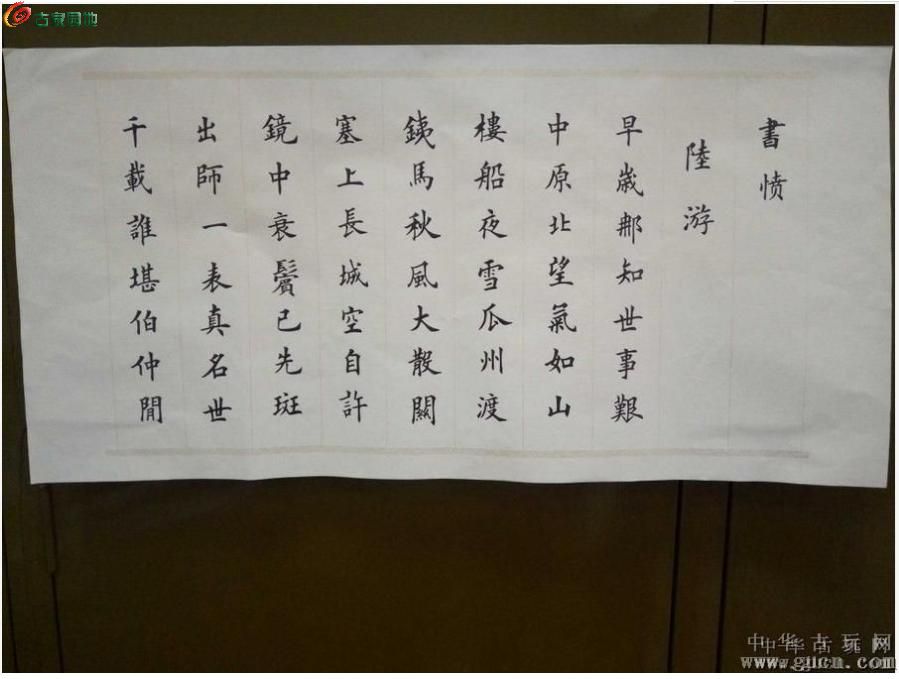 書愤
陸游
早嵗那知世事艱
中原北望氣如山
樓船夜雪瓜州渡
銕馬秋風大散關
塞上長城空自許
鏡中衰鬢已先斑
出師一表真名世
千載誰堪伯仲間
古家园地
中华古玩网
www.gucn.com